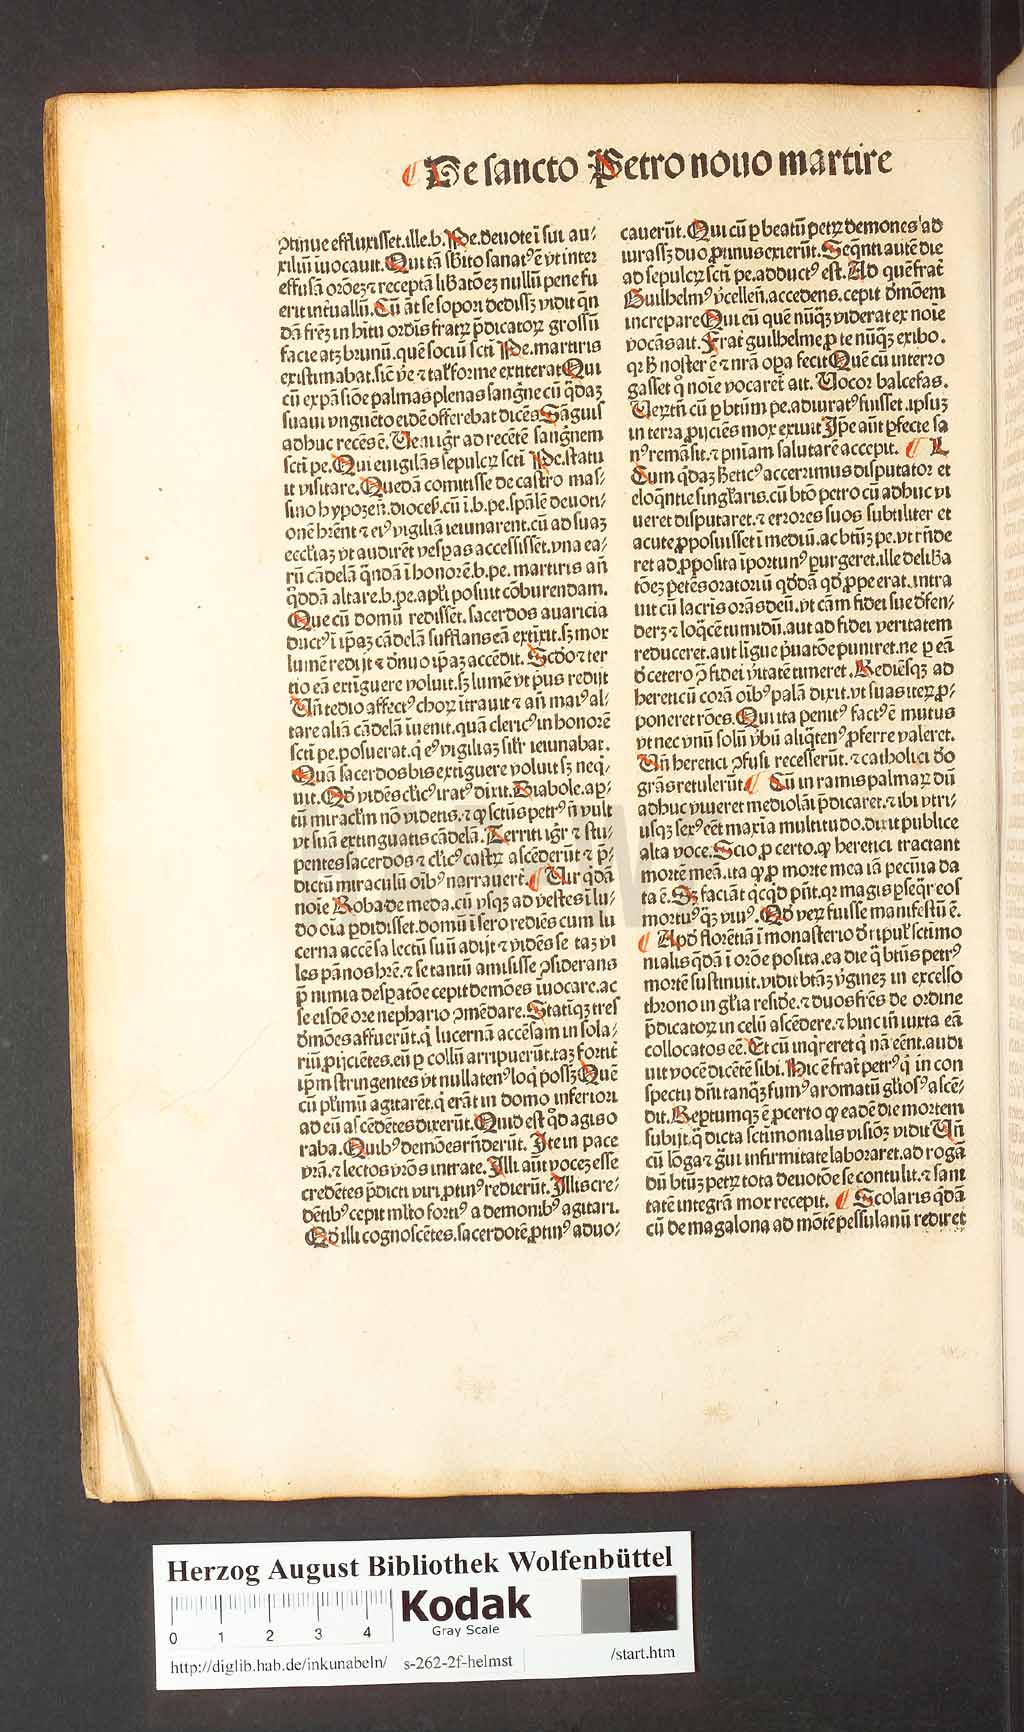 De sancto Petro nouo martire
ꝯtinue effluxisset.ille.b.Pe.deuote ī sui au⸗
xiliū īuocauit.Qui tā sb̄ito sanatꝰ ē vt inter
effusā orōeꝫ ⁊ receptā lib̄atōeꝫ nullū pene fu
erit int̄uallū.Cū āt se sopori dedissꝫ vidit q̄n
dā fr̄eꝫ in hītu ordīs fratꝝ p̄dicatoꝝ grossū
facie atqꝫ brunū.quē sociū scti Pe.martiris
existimabat.sic̄ ve ⁊ tal̄ forme extiterat Qui
cū expāsiōe palmas plenas sangne cū q̄daꝫ
suaui vnguēto eidē offerebat dicēs Sāguis
adhuc recēs ē.Veni igr̄ ad recētē sangnem
scti pe.Qui euigilās sepulcꝝ scti Pe.statu
it visitare.Quedā comitisse de castro mas⸗
sino hypozeñ.diocesꝰ.cū ī.b.pe.spālē deuoti⸗
onē hrēnt ⁊ eiꝰ vigiliā ieiunarent.cū ad suaꝫ
eccl̄iaꝫ vt audirēt vespas accessisset.vna ea⸗
rū cādelā q̄ndā ī honorē.b.pe.martiris añ
q̄ddā altare.b.pe.apl̄i posuit cōburendam.
Que cū domū redisset.sacerdos auaricia
ductꝰ ī ip̄aꝫ cādelā sufflans eā extīxit.sꝫ mox
lumē redijt ⁊ dn̄uo ip̄aꝫ accēdit.Scd̄o ⁊ ter
tio eā extīguere voluit.sꝫ lumē vt pꝰus redijt
Vñ tedio affectꝰ choꝝ ītrauit ⁊ añ maiꝰ al⸗
tare aliā cādelā īuenit.quā clericꝰ in honorē
scti pe.posuerat.q̇ eꝰ vigiliaꝫ sil̄r ieiunabat.
Quā sacerdos bis extiguere voluit sꝫ neq̇⸗
uit.Qd̄ vidēs cl̄icꝰ iratꝰ dixit.Diabole.ap⸗
tū mirackm nō videtis.⁊ ꝙ sctūs petrꝰ ñ vult
vt suā extinguatis cādelā.Territi igr̄ ⁊ stu⸗
pentes sacerdos ⁊ cl̄icꝰ castꝝ ascēderūt ⁊ p̄⸗
dictū miraculū oībꝰ narrauert̄.¶ Uir q̄dā
noīe Roba.de meda.cū vsqꝫ ad vestes ī lu⸗
do oīa ꝑdidisset.domū ī sero rediēs cum lu
cerna accēsa lectū suū adijt ⁊ vidēs se taꝫ vi
les pānos hrē.⁊ se tantū amisisse ꝯsiderans
p̄ nimia despatōe cepit demōes īuocare.ac
se eisdē ore nephario ꝯmēdare.Statiqꝫ tres
dmōes affuerūt.q̇ lucernā accēsam in sola⸗
riū ꝓijciētes.eū ꝑ collū arripuerūt.taꝫ fortit̄
ip̄m stringentes vt nullatenꝰ loq̇ possꝫ Quē
cū pl̄imū agitarēt.q̇ erāt in domo inferiori
ad eū ascēdētes dixerūt.Quid est qd̄ agis o
raba.Quibꝰ demōes rn̄derūt.Ite in pace
vrā.⁊ lectos vr̄os intrate.Illi aūt vocez esse
credētes p̄dicti viri.ꝓtinꝰ redierūt.Illis cre⸗
dētibꝰ cepit ml̄to fortiꝰ a demonibꝰ agitari.
Qd̄ illi cognoscētes.sacerdotē ꝓtinꝰ aduo⸗
cauerūt.Qui cū ꝑ beatū petꝝ demones ad
iurassꝫ duo ꝓtinus exierūt.Seq̄nti autē die
ad sepulcꝝ scti pe.adductꝰ est.Ad quē frat̄
Guilhelmꝰ v̄celleñ.accedens.cepit d̄mōem
increpare Qui eū quē nūq̄ꝫ viderat ex noīe
vocās ait.Frat guilhelme.ꝓ te nūq̄ꝫ exibo.
qꝛ hͥ noster ē ⁊ nr̄a oꝑa fecit Quē cū interro
gasset qͦ noīe vocaret̄ ait.Vocor balcefas.
Verūtn̄ cū ꝑ btūm pe.adiuratꝰ fuisset.ipsuꝫ
in terra ꝓijciēs mox exiuit Ip̄e aūt ꝑfecte sa
nꝰ remāsit.⁊ pn̄iam salutarē accepit. ¶ L
Cum q̄daꝫ hͤticꝰ accerrimus disputator et
eloqn̄tie singlaris.cū btō petro cū adhuc vi
ueret disputaret.⁊ errores suos subtiliter et
acute ꝓposuisset ī mediū.ac btūꝫ pe.vt rn̄de
ret ad ꝓposita īportunꝰ ꝑurgeret.ille delib̄a
tōeꝫ petēs oratoriū qd̄dā qd̄ ꝓpe erat.intra
uit cū lacris orās deū.vt cām fidei sue d̄fen⸗
deꝝ ⁊ loq̄cē tumidū.aut ad fidei veritatem
reduceret.aut ligue p̄uatōe puniret.ne ꝑ eā
d̄ cetero ꝯ fidei v̄itatē tumeret.Rediēsqꝫ ad
hereticū corā oībꝰ palā dixit.vt suas iteꝝ ꝓ⸗
poneret rōes.Qui ita penitꝰ factꝰ ē mutus
vt nec vnū solū v̄bū aliq̄tenꝰ ꝓferre valeret.
Vñ heretici ꝯfusi recesserūt.⁊ catholici dō
grās retulerūt ¶ Cū in ramis palmaꝝ dū
adhuc viueret mediolāi p̄dicaret.⁊ ibi vtri⸗
usqꝫ sexꝰ eēt maxīa multitudo.dixit publice
alta voce.Scio ꝓ certo.ꝙ heretici tractant
mortē meā.ita ꝙ ꝓ morte mea iā pecūia da
ta ē.Sꝫ faciāt qͥcqͥd pn̄t.qꝛ magis ꝑseq̄r eos
mortuꝰ q̄ꝫ viuꝰ.Qd̄ veꝝ fuisse manifestū ē.
¶ Apd̄ florētiā ī monasterio d̄ ripul̄ sctimo
nialis q̄dā ī orōe posita.ea die q̄ btūs petrꝰ
mortē sustinuit.vidit btāꝫ v̄gineꝫ in excelso
throno in gl̄ia reside.⁊ duos fr̄es de ordine
p̄dicatoꝝ in celū ascēdere.⁊ hinc īn iuxta eā
collocatos eē.Et cū inq̄reret q̇ nā eēnt.audi
uit vocē dicētē sibi.Hic ē frat̄ petrꝰ q̇ in con
spectu dn̄i tanq̄ꝫ fumꝰ aromatū gl̄iosꝰ ascē⸗
dit.Reptumqꝫ ē ꝓ certo ꝙ eadē die mortem
subijt.q̄ dicta sctimonialis visiōꝫ vidit Vñ
cū lōga ⁊ g̈ui infirmitate laboraret.ad rogā
dū btūꝫ petꝝ tota deuotōe se contulit.⁊ sani
tatē integrā mox recepit. ¶ Scolaris q̄dā
cū de magalona ad mōtē pessulanū rediret
Herzog August Bibliothek Wolfenbüttel
0 1 2 3 4
Kodak
Gray Scale
http://diglib.hab.de/inkunabeln/ s-262-2f-helmst /start.htm